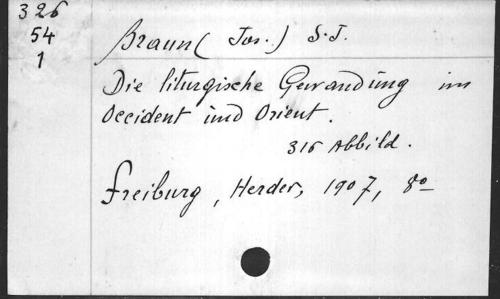 326
54
1
Braun (Jos.) S.J.
Die liturgische Gewandung im
Occident und Orient.
316 Abbild.
Freiburg, Herder, 1907, 8o